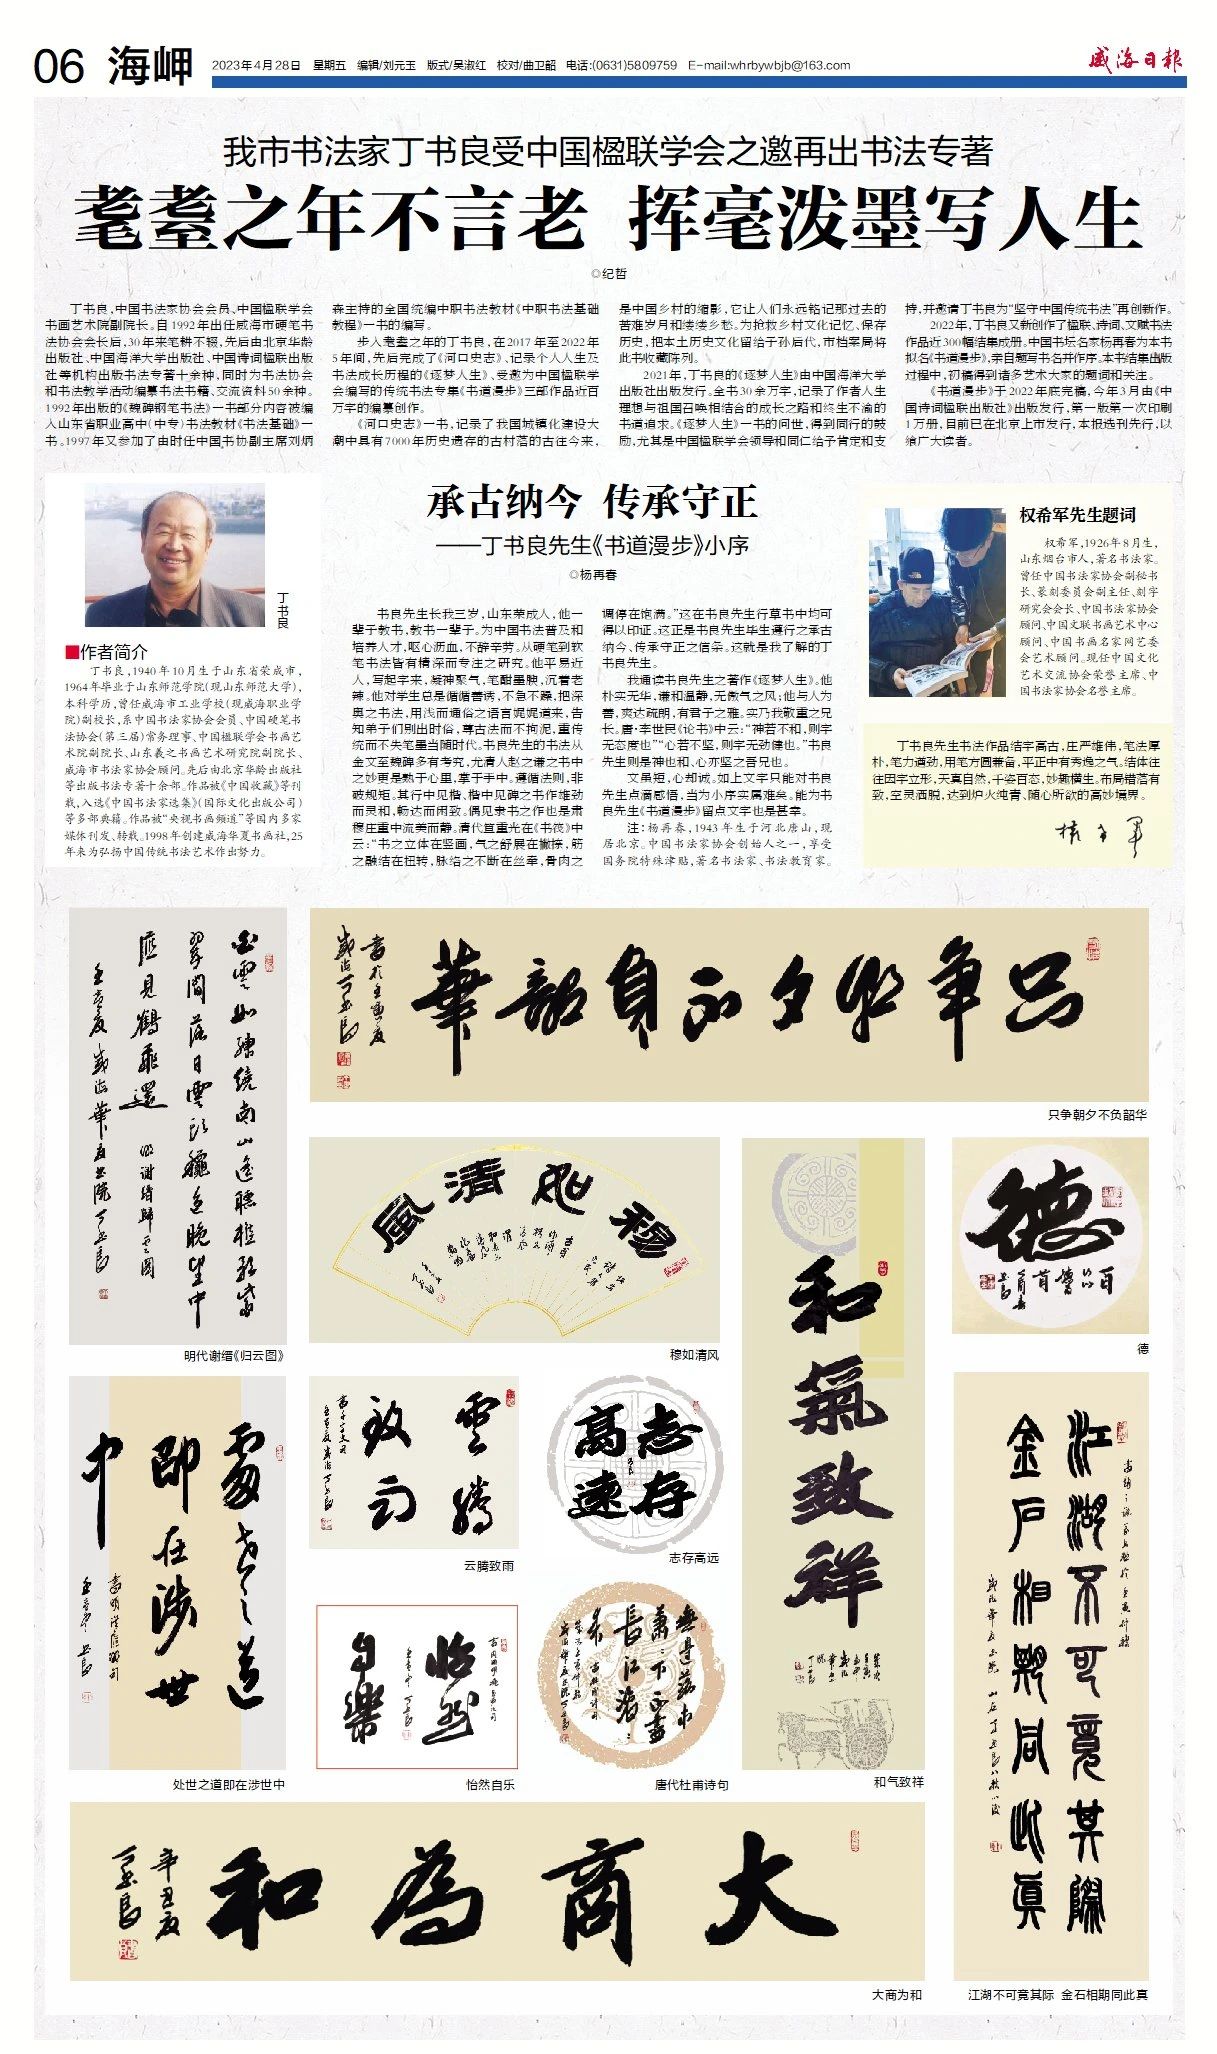 06 海岬
2023年4月28日 星期五 编辑/刘元玉 版式/吴淑红 校对/曲卫韶 电话:(0631)5809759 E-mail:whrbywbjb@163.com
威海日报
我市书法家丁书良受中国楹联学会之邀再出书法专著
耄耋之年不言老 挥毫泼墨写人生
◎纪哲
丁书良,中国书法家协会会员、中国楹联学会
书画艺术院副院长。自1992年出任威海市硬笔书
法协会会长后,30年来笔耕不辍,先后由北京华龄
出版社、中国海洋大学出版社、中国诗词楹联出版
社等机构出版书法专著十余种,同时为书法协会
和书法教学活动编纂书法书籍、交流资料50余种。
1992年出版的《魏碑钢笔书法》一书部分内容被编
入山东省职业高中(中专)书法教材《书法基础》一
书。1997年又参加了由时任中国书协副主席刘炳
森主持的全国统编中职书法教材《中职书法基础
教程》一书的编写。
步入耄耋之年的丁书良,在2017年至2022年
5年间,先后完成了《河口史志》、记录个人人生及
书法成长历程的《逐梦人生》、受邀为中国楹联学
会编写的传统书法专集《书道漫步》三部作品近百
万字的编纂创作。
《河口史志》一书,记录了我国城镇化建设大
潮中具有7000年历史遗存的古村落的古往今来,
是中国乡村的缩影,它让人们永远铭记那过去的
苦难岁月和缕缕乡愁。为抢救乡村文化记忆、保存
历史,把本土历史文化留给子孙后代,市档案局将
此书收藏陈列。
2021年,丁书良的《逐梦人生》由中国海洋大学
出版社出版发行。全书30余万字,记录了作者人生
理想与祖国召唤相结合的成长之路和终生不渝的
书道追求。《逐梦人生》一书的问世,得到同行的鼓
励,尤其是中国楹联学会领导和同仁给予肯定和支
持,并邀请丁书良为“坚守中国传统书法”再创新作。
2022年,丁书良又新创作了楹联、诗词、文赋书法
作品近300幅结集成册。中国书坛名家杨再春为本书
拟名《书道漫步》,亲自题写书名并作序。本书结集出版
过程中,初稿得到诸多艺术大家的题词和关注。
《书道漫步》于2022年底完稿,今年3月由《中
国诗词楹联出版社》出版发行,第一版第一次印刷
1万册,目前已在北京上市发行,本报选刊先行,以
飨广大读者。
丁书良
■作者简介
丁书良,1940年10月生于山东省荣成市,
1964年毕业于山东师范学院(现山东师范大学),
本科学历,曾任威海市工业学校(现威海职业学
院)副校长,系中国书法家协会会员、中国硬笔书
法协会(第三届)常务理事、中国楹联学会书画艺
术院副院长、山东羲之书画艺术研究院副院长、
威海市书法家协会顾问。先后由北京华龄出版社
等出版书法专著十余部。作品被《中国收藏》等刊
载,入选《中国书法家选集》(国际文化出版公司)
等多部典籍。作品被“央视书画频道”等国内多家
媒体刊发、转载。1998年创建威海华夏书画社,25
年来为弘扬中国传统书法艺术作出努力。
承古纳今 传承守正
——丁书良先生《书道漫步》小序
◎杨再春
书良先生长我三岁,山东荣成人,他一
辈子教书,教书一辈子。为中国书法普及和
培养人才,呕心沥血,不辞辛劳。从硬笔到软
笔书法皆有精深而专注之研究。他平易近
人,写起字来,凝神聚气,笔酣墨腴,沉着老
辣。他对学生总是循循善诱,不急不躁,把深
奥之书法,用浅而通俗之语言娓娓道来,告
知弟子们别出时俗,尊古法而不拘泥,重传
统而不失笔墨当随时代。书良先生的书法从
金文至魏碑多有考究,尤清人赵之谦之书中
之妙更是熟于心里,拿于手中。遵循法则,非
破规矩。其行中见楷、楷中见碑之书作雄劲
而灵和,畅达而闲致。偶见隶书之作也是肃
穆庄重中流美而静。清代笪重光在《书筏》中
云:“书之立体在竖画,气之舒展在撇捺,筋
之融结在扭转,脉络之不断在丝牵,骨肉之
调停在饱满。”这在书良先生行草书中均可
得以印证。这正是书良先生毕生遵行之承古
纳今、传承守正之信条。这就是我了解的丁
书良先生。
我通读书良先生之著作《逐梦人生》。他
朴实无华,谦和温静,无傲气之风;他与人为
善,爽达疏朗,有君子之雅。实乃我敬重之兄
长。唐·李世民《论书》中云:“神若不和,则字
无态度也”“心若不坚,则字无劲健也。”书良
先生则是神也和、心亦坚之吾兄也。
文虽短,心却诚。如上文字只能对书良
先生点滴感悟,当为小序实属难矣。能为书
良先生《书道漫步》留点文字也是甚幸。
注:杨再春,1943年生于河北唐山,现
居北京。中国书法家协会创始人之一,享受
国务院特殊津贴,著名书法家、书法教育家。
权希军先生题词
权希军,1926年8月生,
山东烟台市人,著名书法家。
曾任中国书法家协会副秘书
长、篆刻委员会副主任、刻字
研究会会长、中国书法家协会
顾问、中国文联书画艺术中心
顾问、中国书画名家网艺委
会艺术顾问。现任中国文化
艺术交流协会荣誉主席、中
国书法家协会名誉主席。
丁书良先生书法作品结字高古,庄严雄伟,笔法厚
朴,笔力遒劲,用笔方圆兼备,平正中有秀逸之气。结体往
往因字立形,天真自然,千姿百态,妙趣横生。布局错落有
致,空灵洒脱,达到炉火纯青、随心所欲的高妙境界。
权希军
白雲如練繞南山遙聽樵歌紫
翠間落日雲頭騷色晚望中
應見鶴飛還
明代谢缙《归云图》
只争朝夕不負韶華
只争朝夕不负韶华
穆如清風
穆如清风
和氣致祥
和气致祥
德
德
處世之道
即在涉世
中
处世之道即在涉世中
雲騰
致雨
云腾致雨
志存
高遠
志存高远
怡然
自樂
怡然自乐
無邊落木
蕭蕭下不盡
長江滾滾
來
唐代杜甫诗句
江湖不可竟其際
金石相期同此真
江湖不可竟其际 金石相期同此真
大商為和
辛丑夏
丁书良
大商为和